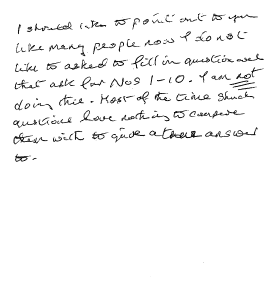 I should like to point out to you
like many people now I do not
like to asked to fill in question
that ask for Nos 1-10. I am not
doing this. Most of the time such
questions have nothing to
them with to give a true answer
to.